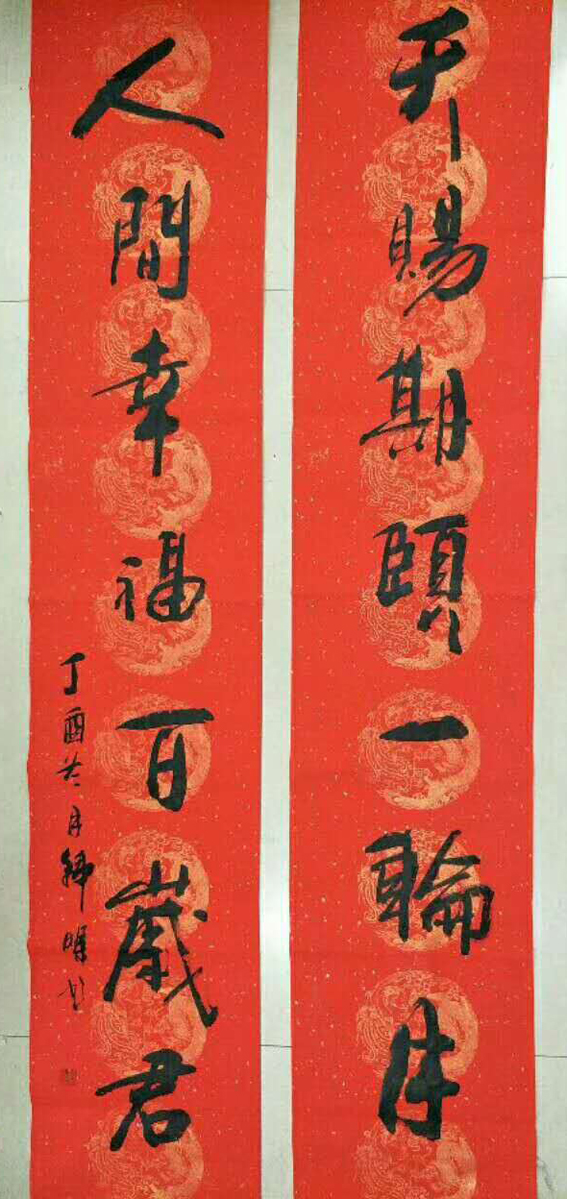 天賜期頤一輪月
人間幸福百歲君
丁酉冬月